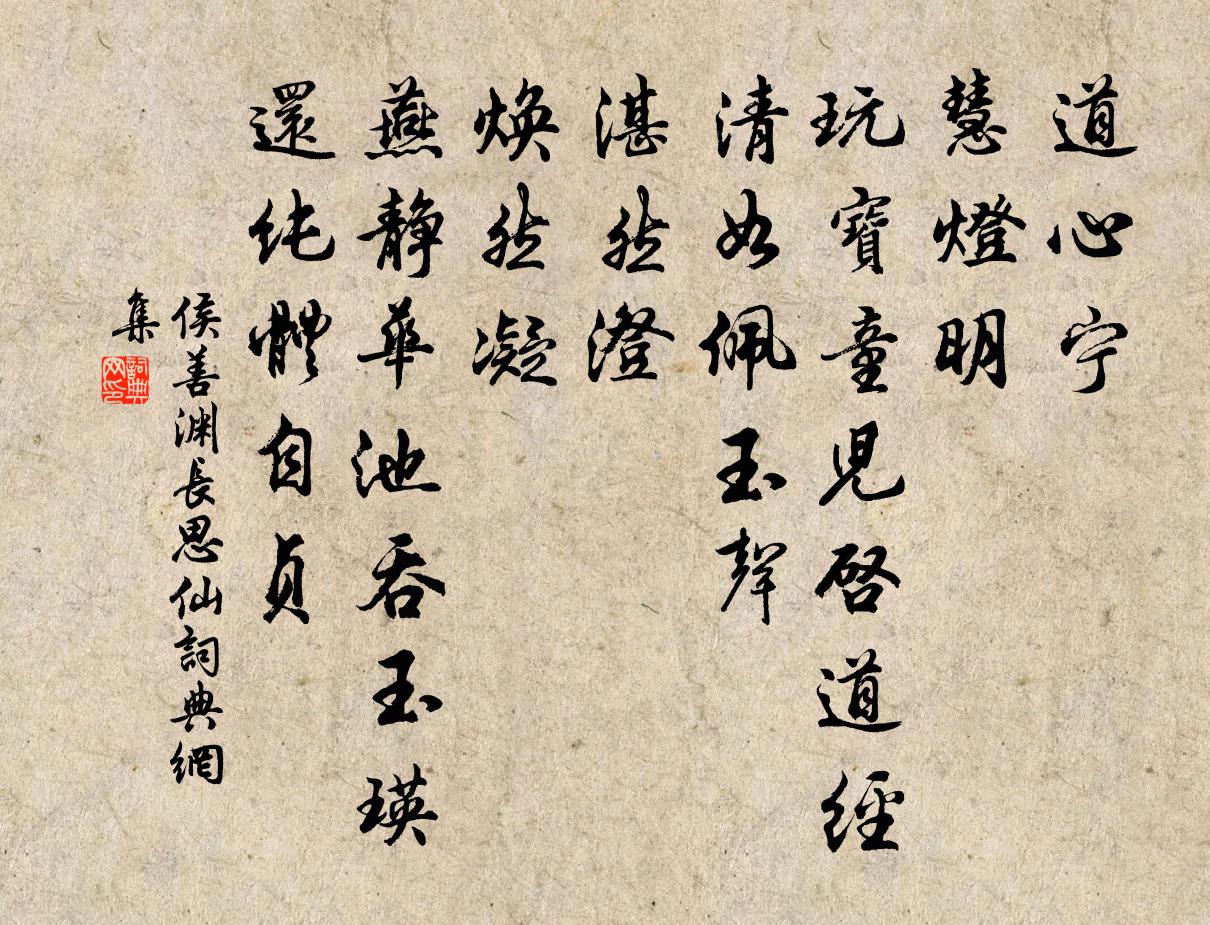 道心宁
慧燈明
玩寶童児啓道經
清如佩玉聲
湛然澄
煥然凝
燕静華池吞玉瑛
還純體自貞
侯善渊長思仙詞典網
集
詞典网印